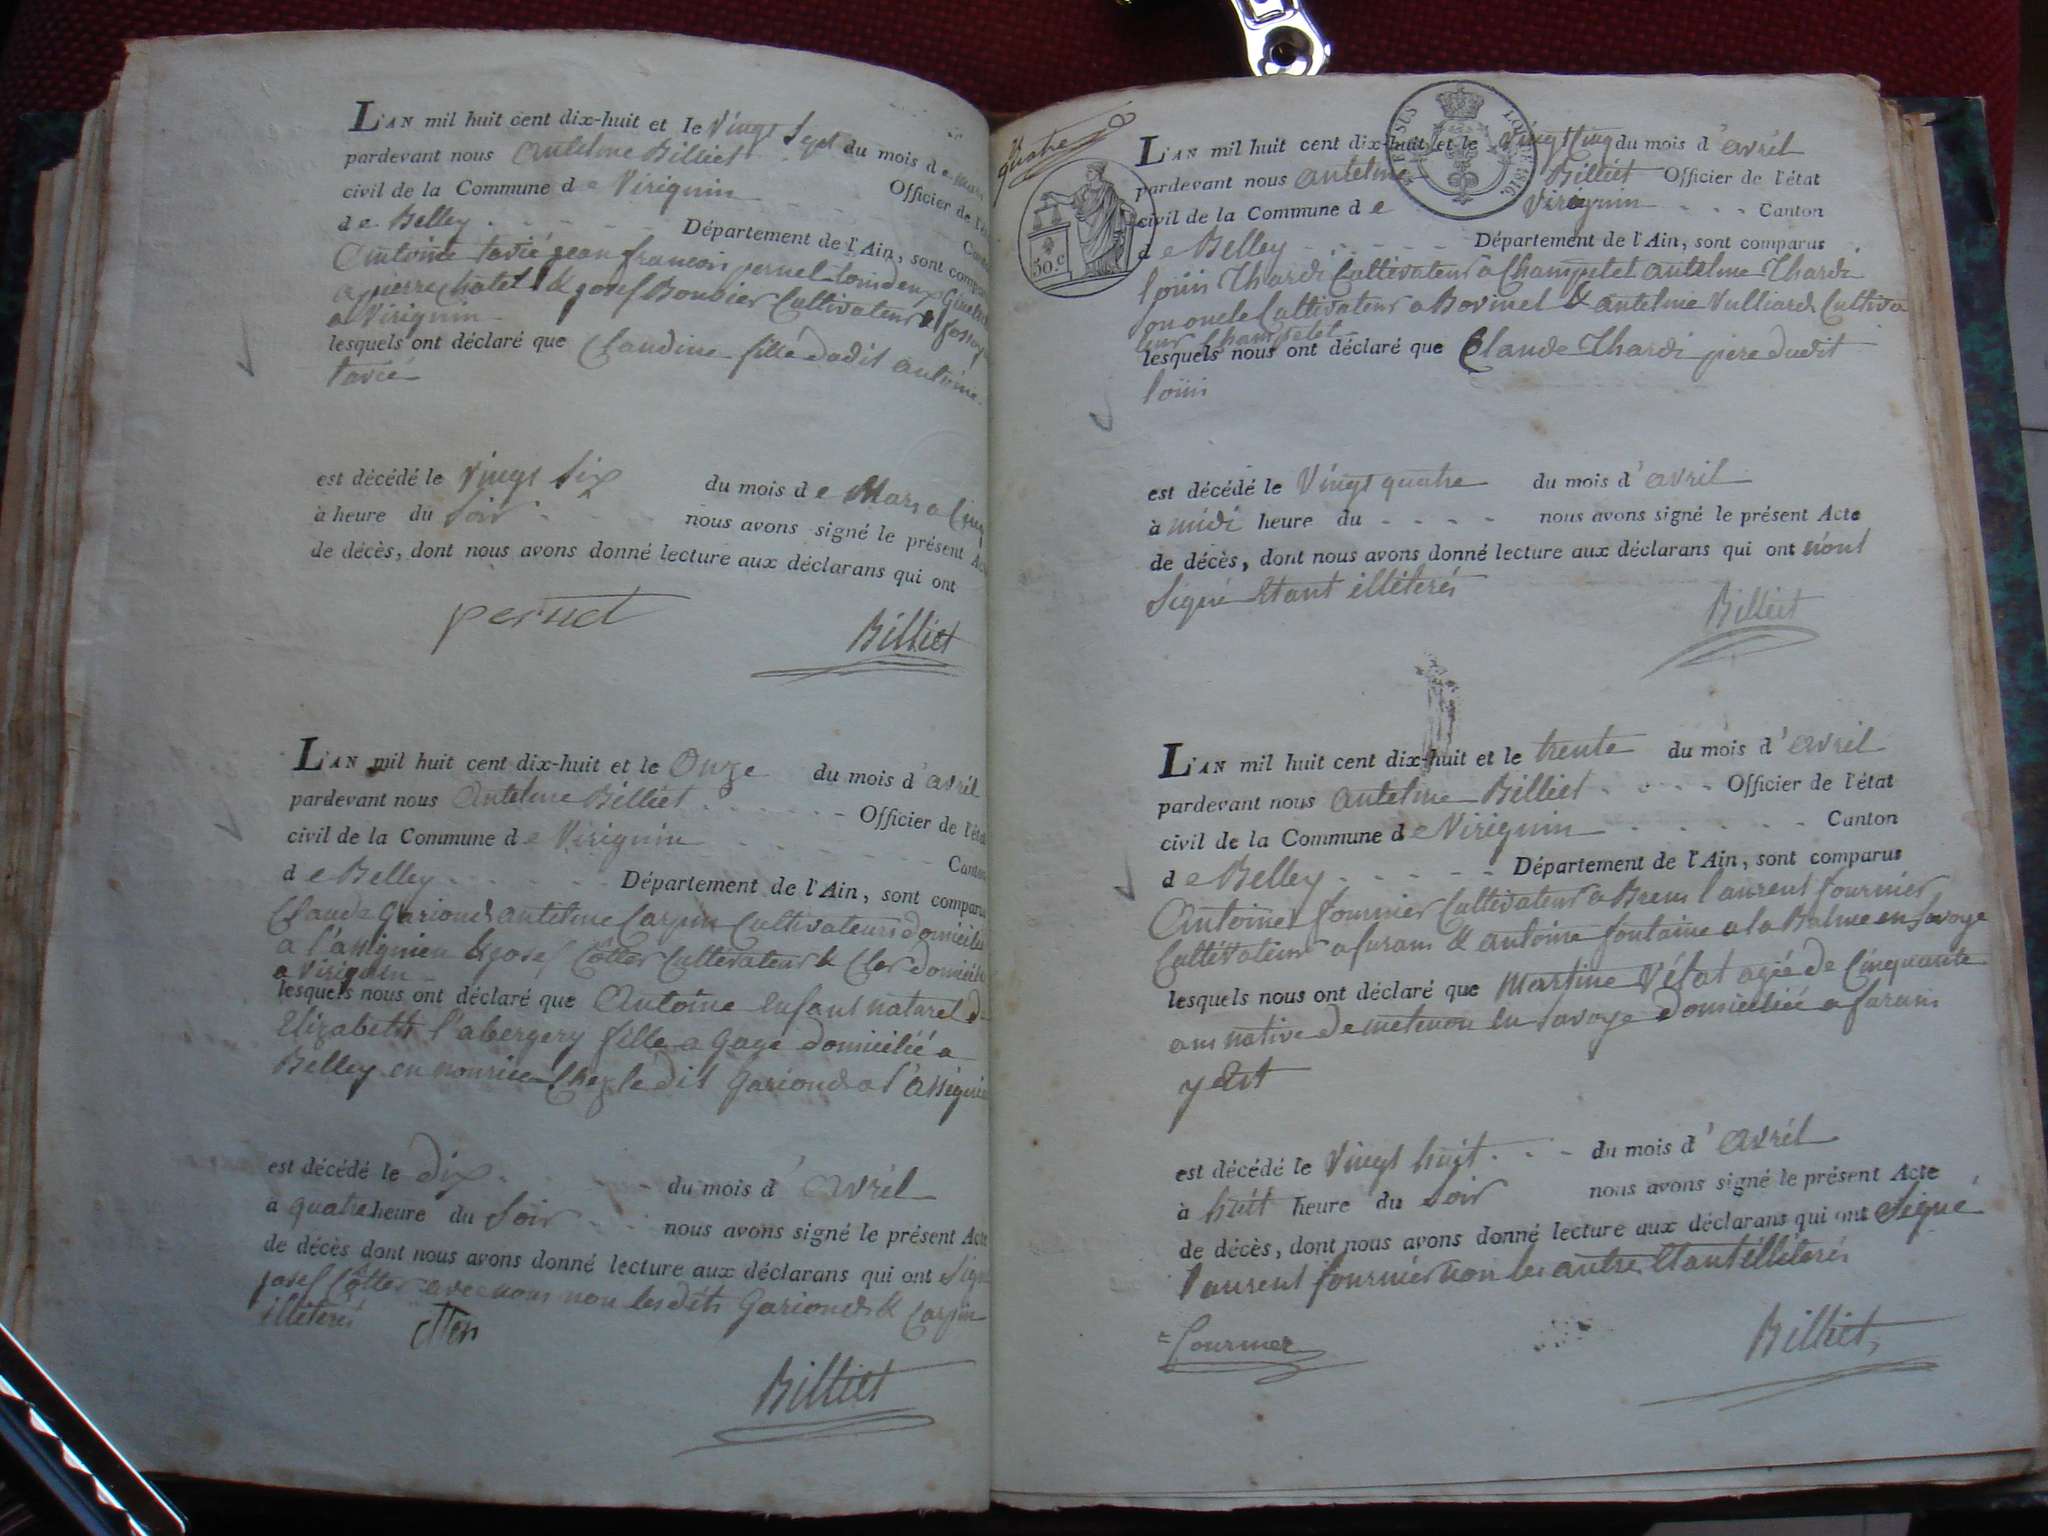 L'AN mil huit cent dix-huit et le vingt sept du mois de mars
pardevant nous antelme Billiet Officier de l'é
civil de la Commune de Virignin Canto
de Belley Département de l'Ain, sont compar
Antoine tavié jean francois pernet tous deux
a pierre chatel & josef Boubier Cultivateur
a Virignin
lesquels ont déclaré que Claudine fille dudit antoine
tavié
est décédé le vingt six du mois de Mars a Cinq
à heure du soir nous avons signé le présent Ac
de décès, dont nous avons donné lecture aux déclarans qui ont
pernet
Billiet
L'AN mil huit cent dix-huit et le Onze du mois d'avril
pardevant nous Antelme Billiet Officier de l'état
civil de la Commune de Virignin Canton
de Belley Département de l'Ain, sont comparus
Claude Gariond antelme Carpin Cultivateurs domicilié
a l'assignieu & josef Cötter Cultivateur & Cler domicilié
a Virignin
lesquels nous ont déclaré que Antoine enfant naturel d
Elizabeth l'abergery fille a gage domiciliée a
Belley en nourice Chez le dit Gariond a l'assignieu
est décédé le dix du mois d'avril
à quatre heure du soir nous avons signé le présent Acte
de décès dont nous avons donné lecture aux déclarans qui ont signé
josef Cötter avec nous non les dits Gariond & Carpin
illéterés
Billiet
quatre
L'AN mil huit cent dix-huit et le vingt Cinq du mois d'avril
pardevant nous antelme Billiet Officier de l'état
civil de la Commune de Virignin Canton
de Belley Département de l'Ain, sont comparus
louis Thardi Cultivateur a Champtel antelme Thardi
on oncle Cultivateur a Bovinel & antelme Vulliard Cultiva
teur a Champtel
lesquels nous ont déclaré que Claude Thardi pere dudit
louis
est décédé le vingt quatre du mois d'avril
à midi heure du nous avons signé le présent Acte
de décès, dont nous avons donné lecture aux déclarans qui ont n'ont
signé Etant illéterés
Billiet
50.c
LOI DE 1816.
L'AN mil huit cent dix-huit et le trente du mois d'avril
pardevant nous antelme Billiet Officier de l'état
civil de la Commune de Virignin Canton
de Belley Département de l'Ain, sont comparus
Antoine fournier Cultivateur a Brens laurent fournier
Cultivateur a furans & antoine fontaine a la Balme en Savoye
lesquels nous ont déclaré que Martine Vétat agée de Cinquante
ans native de metenou en Savoye domiciliée a furans
y Est
est décédé le vingt huit du mois d'avril
à huit heure du soir nous avons signé le présent Acte
de décès, dont nous avons donné lecture aux déclarans qui ont signé
laurent fournier non les autres Etant illéterés
fournier
Billiet